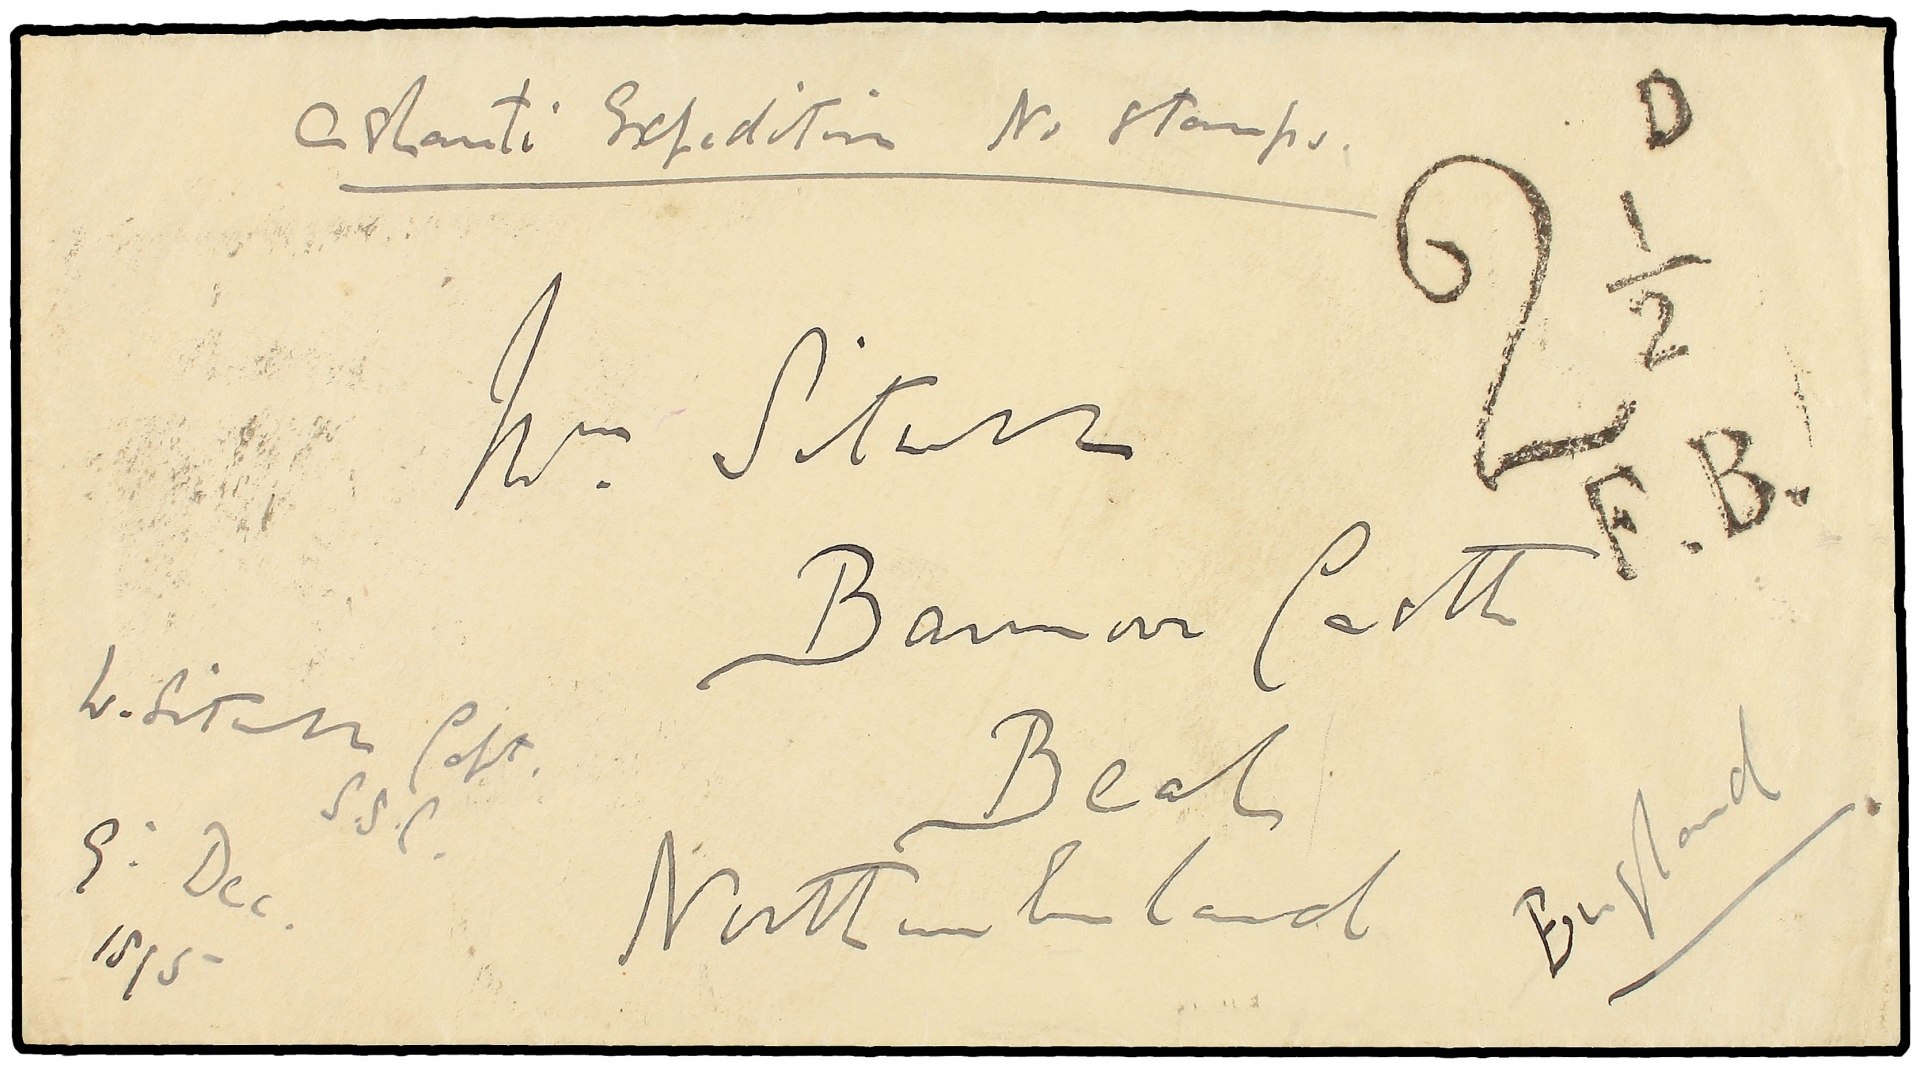 Ashanti Expedition No Stamps.
D
2 1/2
F.B.
Mrs. Sitwell
Barmoor Castle
Beal
Northumberland
England
W. Sitwell Capt.
S.S.C.
9: Dec.
1895